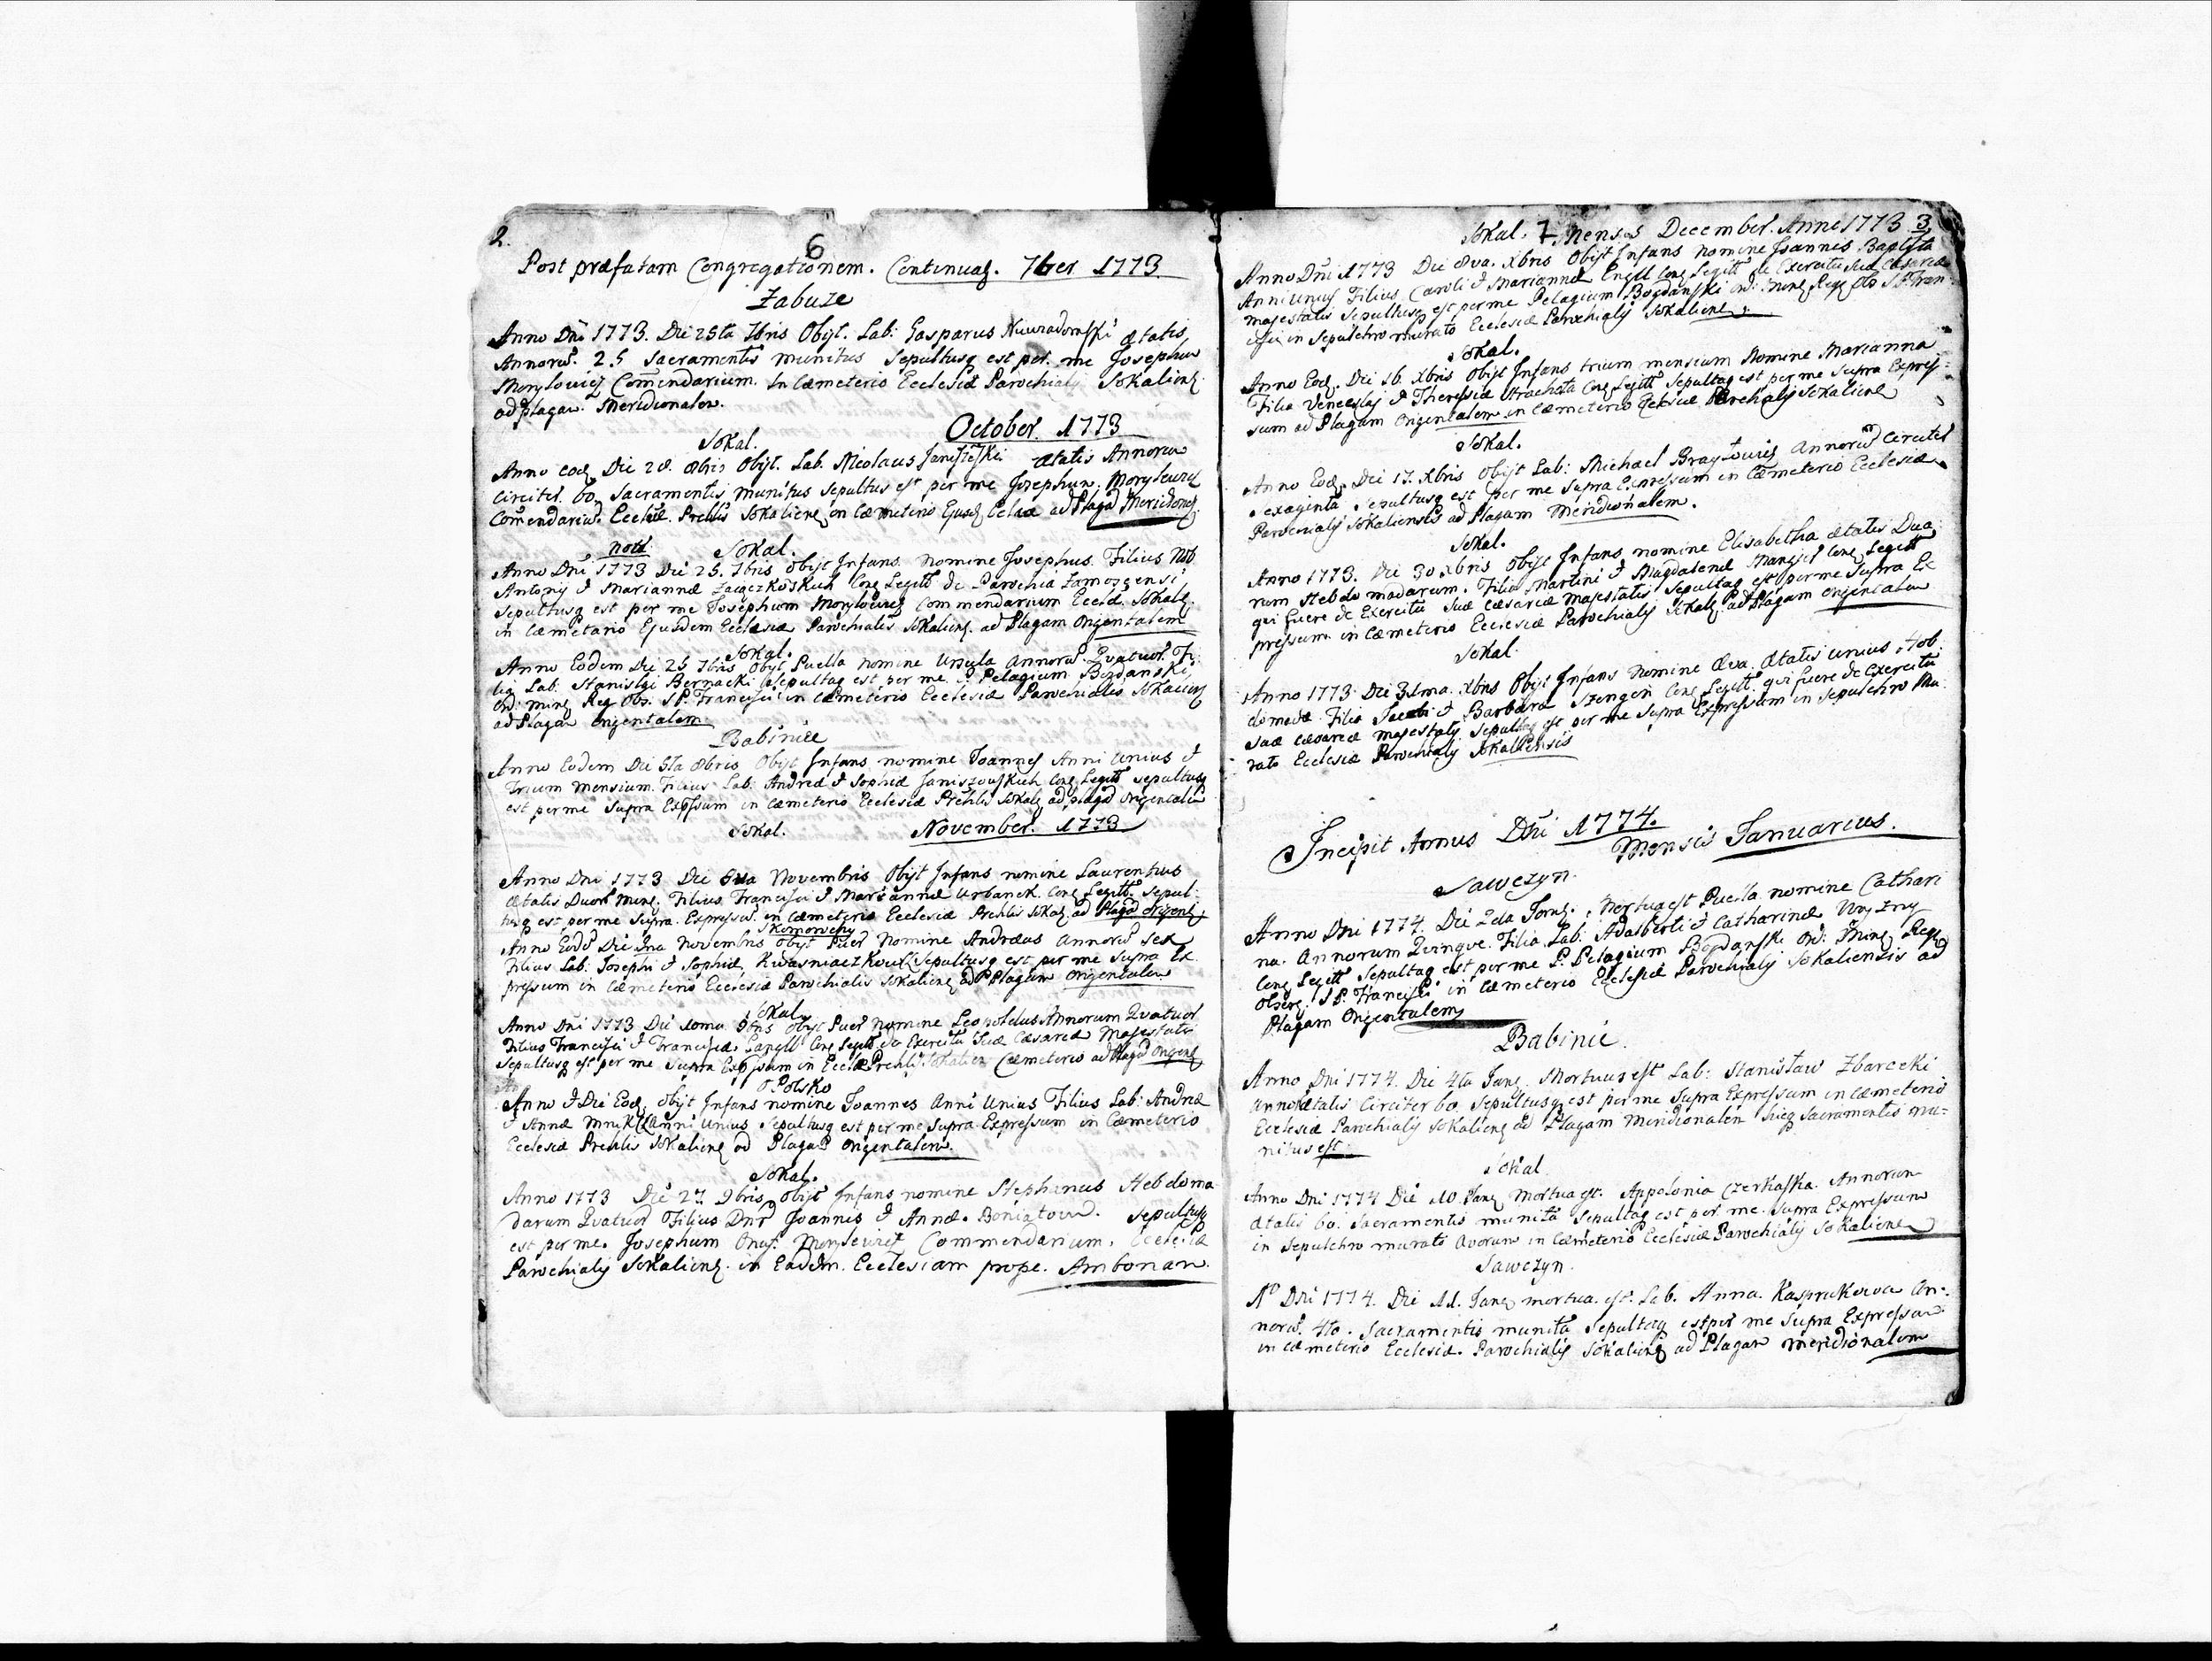 2.
6
Post præfatam Congregationem. Continuaō. 7ber 1773
Zabuze
Anno Dni 1773. Die 25ta 7bris Obijt. Lab: Gasparus ætatis
Annorũ. 25 Sacramentis munitus Sepultusq est per me Josephum
Morylowicz Com̃endarium. In Cæmeterio Ecclesiæ Parochialis Sokalienẽ
ad plagam Meridionalem.
October. 1773
Sokal.
Anno eodẽ Die 28. 8bris Obijt. Lab. Nicolaus ætatis Annorum
Circiter 60, Sacramentis munitus Sepultus est per me Josephum Morylewicz
Com̃endariũ. Ecclæ. Prchlis Sokalienẽ in Cæmeterio Ejusdẽ Eclæ ad Plagã Meridionẽ
Nota Sokal.
Anno Dni 1773 Die 25. 7bris Obijt Infans Nomine Josephus Filius Nob
Antonij & Mariannæ Zaięczkoskich Conẽ Legitt de Parochia Zamosgensi,
Sepultusq est per me Josephum Morylowicz Commendarium Eccle. Sokalẽ
in Cæmetario Ejusdem Ecclesiæ Parochialis Sokalienẽ. ad Plagam Orgentalem
Sokal.
Anno Eodem Die 25 7bris Obijt Puella Nomine Ursula Annorũ Qvatuor. Fi
lia Lab. Stanislai Bernacki Sepultaq est per me P. Pelagium Bogdanski,
Ord. minẽ Reg Obs. S.P. Francisci in Cæmeterio Ecclesiæ Parochialis Sokalienẽ
ad Plagam Orgentalem
Babinice
Anno Eodem Die 5ta 8bris Obijt Infans nomine Joannes Anni Unius &
Trium Mensium. Filius Lab: Andreæ & Sophiæ Janiszouskich Conẽ Legitt Sepultusq
est per me Supra Exp̃sum in Cæmeterio Ecclesiæ Prchlis Sokalẽ ad plagã Orgentalem
Sokal. November. 1773
Anno Dni 1773 Die Novembris Obijt Infans nomine Laurentius
Ætatis Duorũ Minẽ. Filius Francisci & Mariannæ Urbanek. Conẽ Legitt. Sepul-
tusq est per me Supra Expressũ. in Cæmeterio Ecclesiæ Prchlis Sokalẽ ad Plagã Orgenẽ
Skomorochy
Anno Eodẽ Die Novembris Obijt Puer Nomine Andræas Annorũ Sex
Filius Lab: Josephi & Sophiæ, Sepultusq est per me Supra Ex
pressum in Cæmeterio Ecclesiæ Parochialis Sokalienẽ ad Plagam Orgentalem
Sokal
Anno Dni 1773 Die 10ma 9bris Obijt Puer Nomine Leopoldus Annorum Qvatuor
Filius Francisci & Franciscæ Conẽ Legitt de Exercitu Suæ Cæsareæ Majestatis
Sepultusq est per me Supra Exp̃sum in Ecclæ Prchlis Sokalien Cæmeterio ad Plagã Orgenẽ
Polsko
Anno & Die Eodẽ. Obijt Infans nomine Joannes Anni Unius Filius Lab: Andreæ
& Annæ Anni Unius Sepultusq est per me Supra Expressum in Cæmeterio
Ecclesiæ Prchlis Sokalienẽ ad Plagam Orgentalem.
Sokal.
Anno 1773 Die 27 9bris Obijt Infans nomine Stephanus Hebdoma
darum Qvatuor Filius Dnr Joannis & Annæ. Boniatow. Sepultusq
est per me. Josephum Onuf. Morylewicz Commendarium. Ecclesiæ
Parochialis Sokalienẽ. in Eadem. Ecclesiam prope. Ambonam.
Sokal. 7 Mensis December. Anni 1773 3
Anno Dni 1773 Die 8va. Xbris Obijt Infans Nomine Joannes Baptista
Anni Unius Filius Caroli & Mariannæ Engll Conẽ Legitt de Exercitu Suæ Cæsareæ
Majestatis Sepultusq est per me Pelagium Bogdanski Ord: Minẽ Reg. Obs S.P. Fran-
cisci in Sepulchro murato Ecclesiæ Parochialis Sokalienẽ.
Sokal.
Anno Eodẽ. Die 16. Xbris Obijt Infans trium mensium Nomine Marianna
Filia Venceslaj & Theresiæ Conẽ Legitt. Sepultaq est per me Supra Expres-
sum ad Plagam Orgentalem in Cæmeterio Eclesiæ Parochialis Sokalienẽ
Sokal.
Anno Eodẽ. Die 17. Xbris Obijt Lab: Michael Annorũ Circiter
Sexaginta Sepultusq est per me Supra Expressum in Cæmeterio Ecclesiæ
Parochialis Sokaliensis ad Plagam Meridionalem.
Sokal.
Anno 1773. Die 30 Xbris Obijt Infans nomine Elisabetha ætatis Dua
rum Hebdomadarum. Filia Martini & Magdalenæ Conẽ Legitt
qui fuere de Exercitu Suæ Cæsareæ Majestatis Sepultaq est per me Supra Ex
pressum in Cæmeterio Ecclesiæ Parochialis Sokalẽ ad Plagam Orgentalem
Sokal.
Anno 1773. Die 31ma. Xbris Obijt Infans Nomine Æva. Ætatis Unius Heb
domadæ Filia Jacobi & Barbaræ Conẽ Legitt. qui fuere de Exercitu
Suæ Cæsareæ Majestatis Sepultaq est per me Supra Expressum in Sepulchro Mu
rato Ecclesiæ Parochialis Sokaliensis
Incipit Annus Dni 1774.
Mensis Januarius.
Sawczyn.
Anno Dni 1774. Die 2da Janẽ. Mortua est Puella nomine Cathari
na. Annorum Qvinqve. Filia Lab: Adalberti & Catharinæ
Conẽ Legitt Sepultaq est per me P. Pelagium Bogdanski Ord: Minẽ Reg.
Observ. S.P. Francisci in Cæmeterio Ecclesiæ Parochialis Sokaliensis ad
Plagam Orgentalem
Babinie.
Anno Dni 1774. Die 4ta Janẽ. Mortuus est Lab: Stanisław Zbarecki
Anno Ætatis Circiter 60. Sepultusq est per me Supra Expressum in Cæmeterio
Ecclesiæ Parochialis Sokalienẽ ad Plagam Meridionalem Sicq Sacramentis mu-
nitus est.
Sokal
Anno Dni 1774 Die 10 Janẽ Mortua est. Appolonia Czerkaska. Annorum
ætatis 60. Sacramentis munita Sepultaq est per me Supra Expressum
in Sepulchro murato Avorum in Cæmeterio Ecclesiæ Parochialis Sokalienẽ
Sawczyn.
Aº Dni 1774. Die 11. Janẽ mortua est. Lab. Anna. Kasprukowa An-
norũ. 40. Sacramentis munita Sepultaq est per me Supra Expressum
in Cæmeterio Ecclesiæ. Parochialis Sokalienẽ ad Plagam Meridionalem